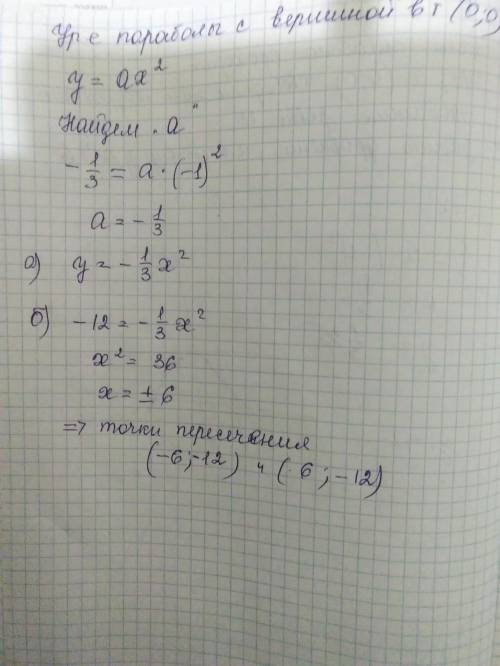 Ур е параболы с вершиной в т (0;0)
y = ax²
Найдем "a"
-1/3 = a · (-1)²
a = -1/3
а) y = -1/3 x²
б) -12 = -1/3 x²
x² = 36
x = ± 6
=> точки пересечения
(-6;-12) и (6;-12)